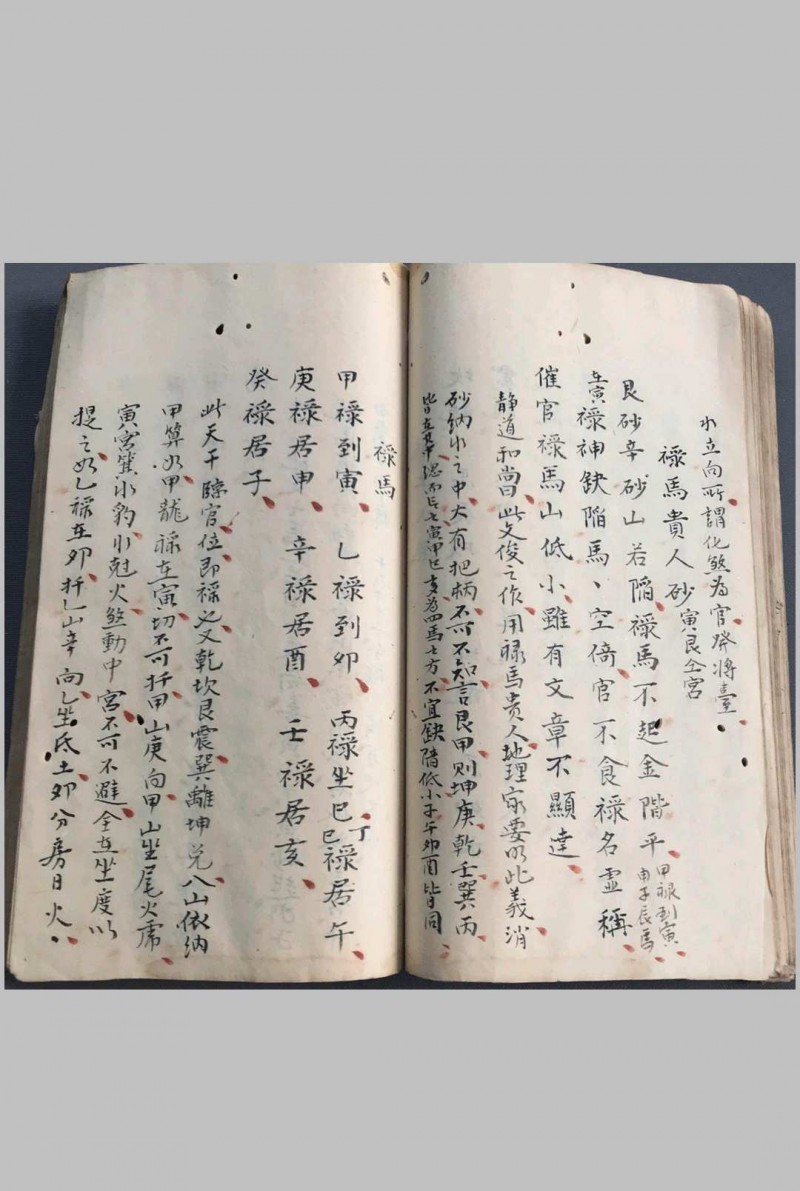 水立向所謂化煞為官癸將臺
祿馬貴人砂寅艮仝宮
艮砂辛砂山若陷祿馬不起金階平甲祿到寅申子辰馬
在寅祿神缺陷馬空倚官不食祿名虛稱
催官祿馬山低小雖有文章不顯達
静道和尚此文俊之作用祿馬貴人地理家要明此義消
砂納水之中大有把柄不可不知言艮甲則坤庚乾壬巽丙
皆在其中總不長七寅申巳亥為四馬七方不宜缺陷低小子午卯酉皆同
祿馬
甲祿到寅乙祿到卯丙祿坐巳丁巳祿居午
庚祿居申辛祿居酉壬祿居亥
癸祿居子
此天干臨官位即祿也又乾坎艮震巽離坤兌八山依納
甲算如甲龍祿在寅切不可扦甲山庚向甲山坐尾火虎
寅宮箕水豹水尅火煞動中宮不可不避全在坐度以
提之如乙祿在卯扦乙山辛向乙坐氐土卯分房日火